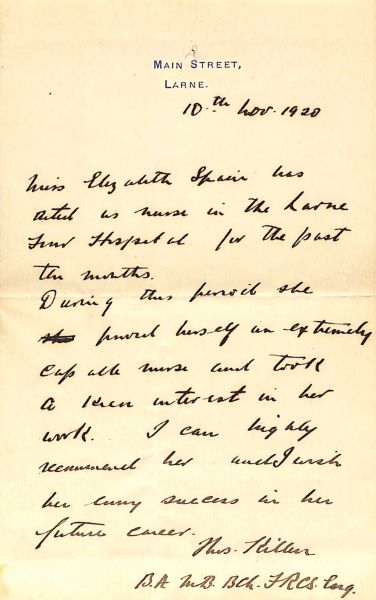 MAIN STREET,
LARNE.
10th Nov. 1920
Miss Elizabeth Spain has
acted as nurse in the Larne
Hospital for the past
ten months.
During this period she
she proved herself an extremely
capable nurse and took
a keen interest in her
work. I can highly
recommend her and I wish
her every success in her
future career.
Thos. Killen
B.A M.B. BCh. F.R.C.S. Eng.